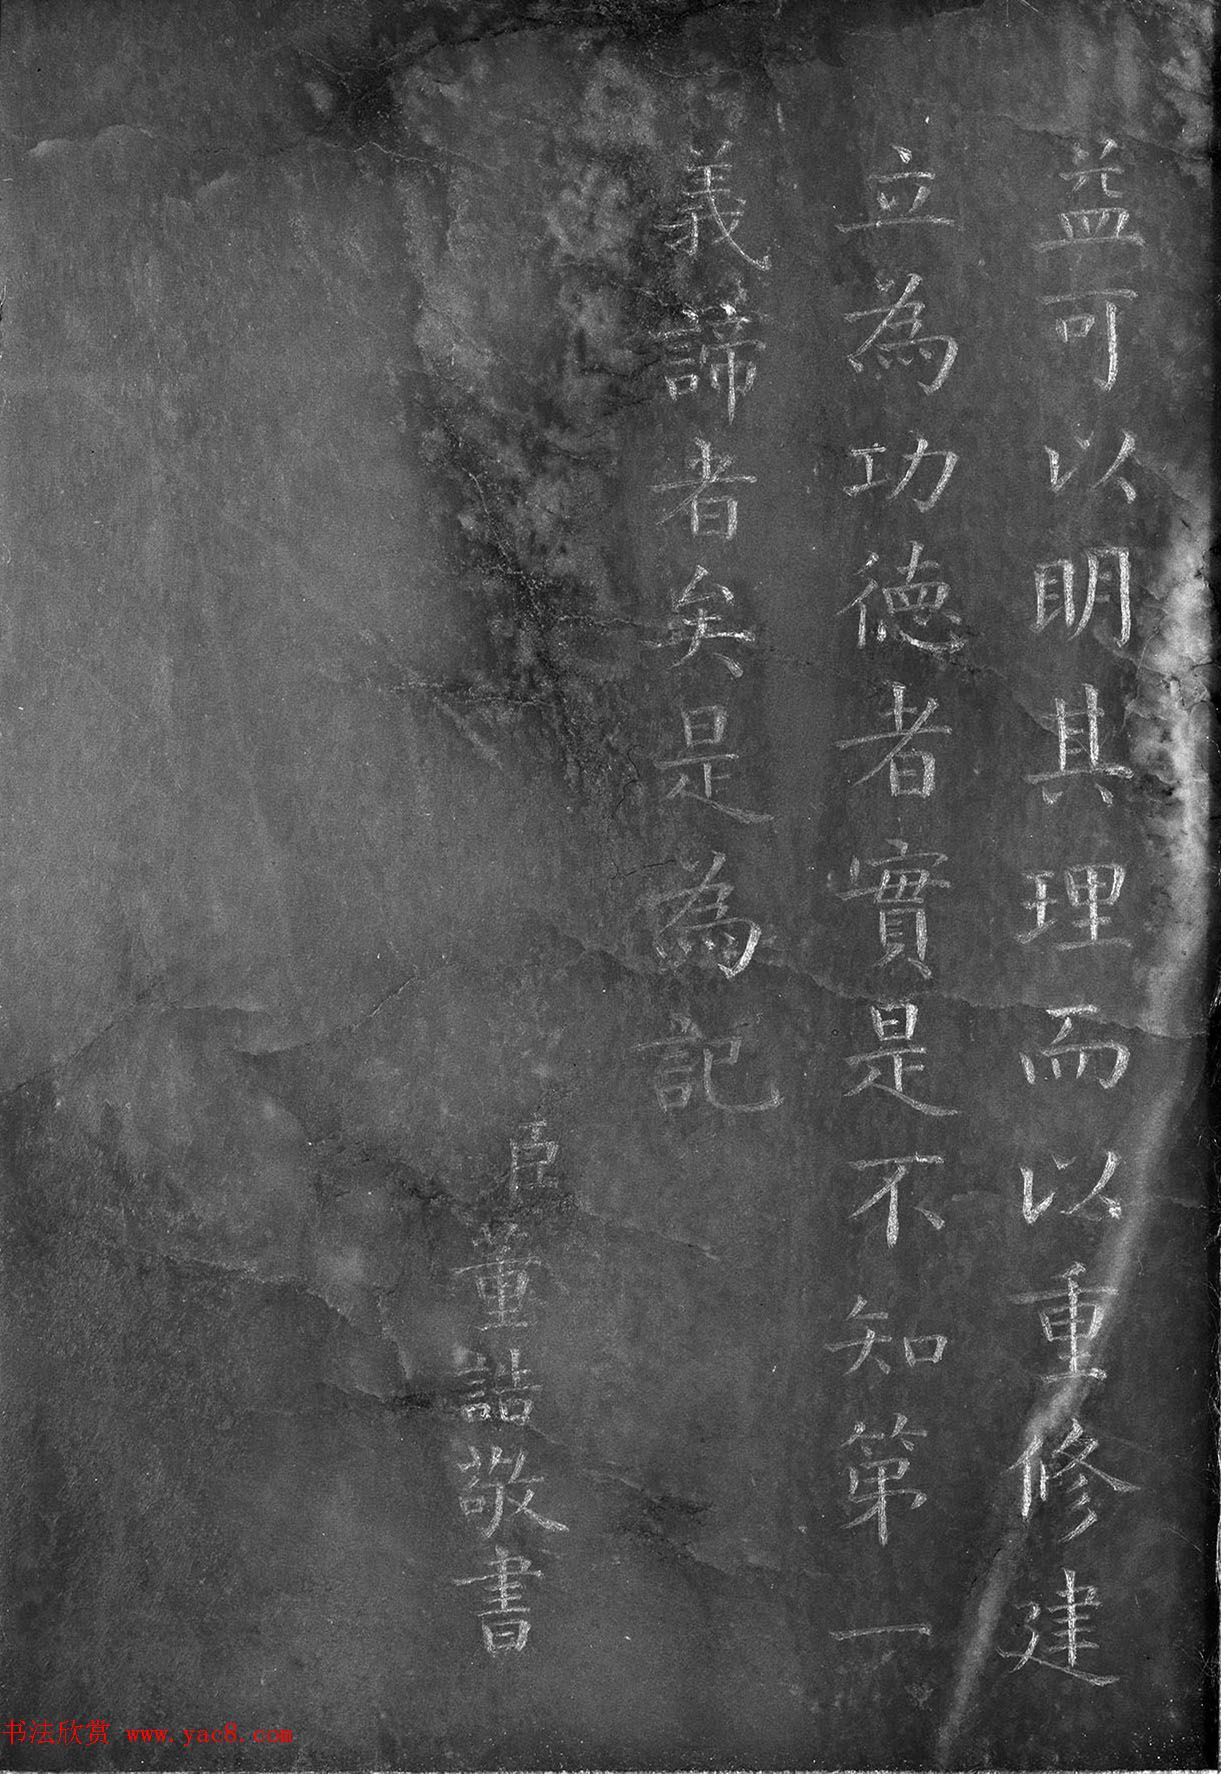 益可以明其理而以重修建
立為功德者實是不知第一
義諦者矣是為記
臣董誥敬書
书法欣赏 www.yac8.com